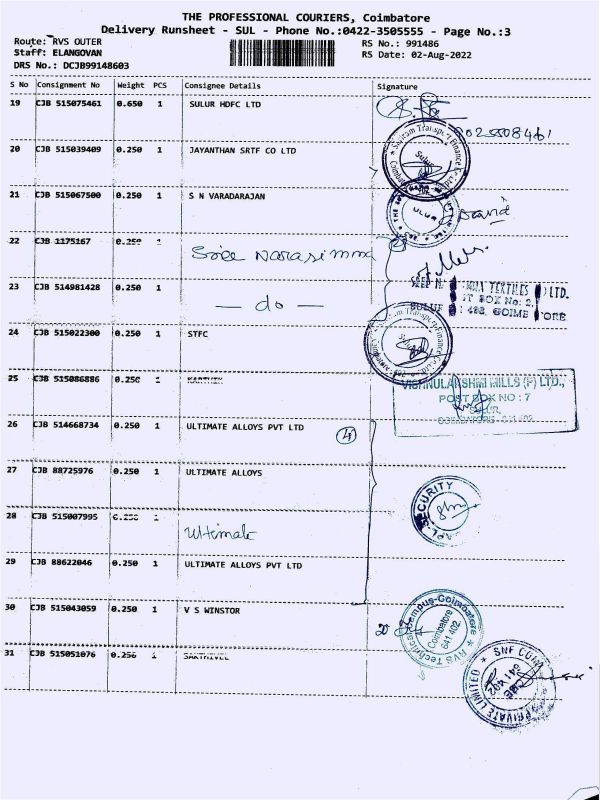 THE PROFESSIONAL COURIERS, Coimbatore
Delivery Runsheet - SUL - Phone No.:0422-3505555 - Page No.:3
Route: RVS OUTER
Staff: ELANGOVAN
DRS No.: DCJB99148603
RS No.: 991486
RS Date: 02-Aug-2022
S No Consignment No Weight PCS Consignee Details Signature
19 CJB 515075461 0.650 1 SULUR HDFC LTD
20 CJB 515039409 0.250 1 JAYANTHAN SRTF CO LTD
Sulur
21 CJB 515067500 0.250 1 S N VARADARAJAN
ULUR
22 CJB 1175167 0.250 1 Sree Narasimma
23 CJB 514981428 0.250 1 — do —
TEXTILES LTD.
BOX No: 2,
24 CJB 515022300 0.250 1 STFC
25 CJB 515086886 0.250 1 KARTHIK
VISHNULAKSHMI MILLS (P) LTD.,
POST BOX NO : 7
SULUR,
26 CJB 514668734 0.250 1 ULTIMATE ALLOYS PVT LTD 4
27 CJB 88725976 0.250 1 ULTIMATE ALLOYS
SECURITY
28 CJB 515007995 0.250 1 Ultimate
29 CJB 88622046 0.250 1 ULTIMATE ALLOYS PVT LTD
30 CJB 515043059 0.250 1 V S WINSTOR
RVS Technical Campus-Coimbatore
Coimbatore
641 402.
31 CJB 515051076 0.250 1 SAKTHIVEL
SNF
PRIVATE LIMITED
641 402